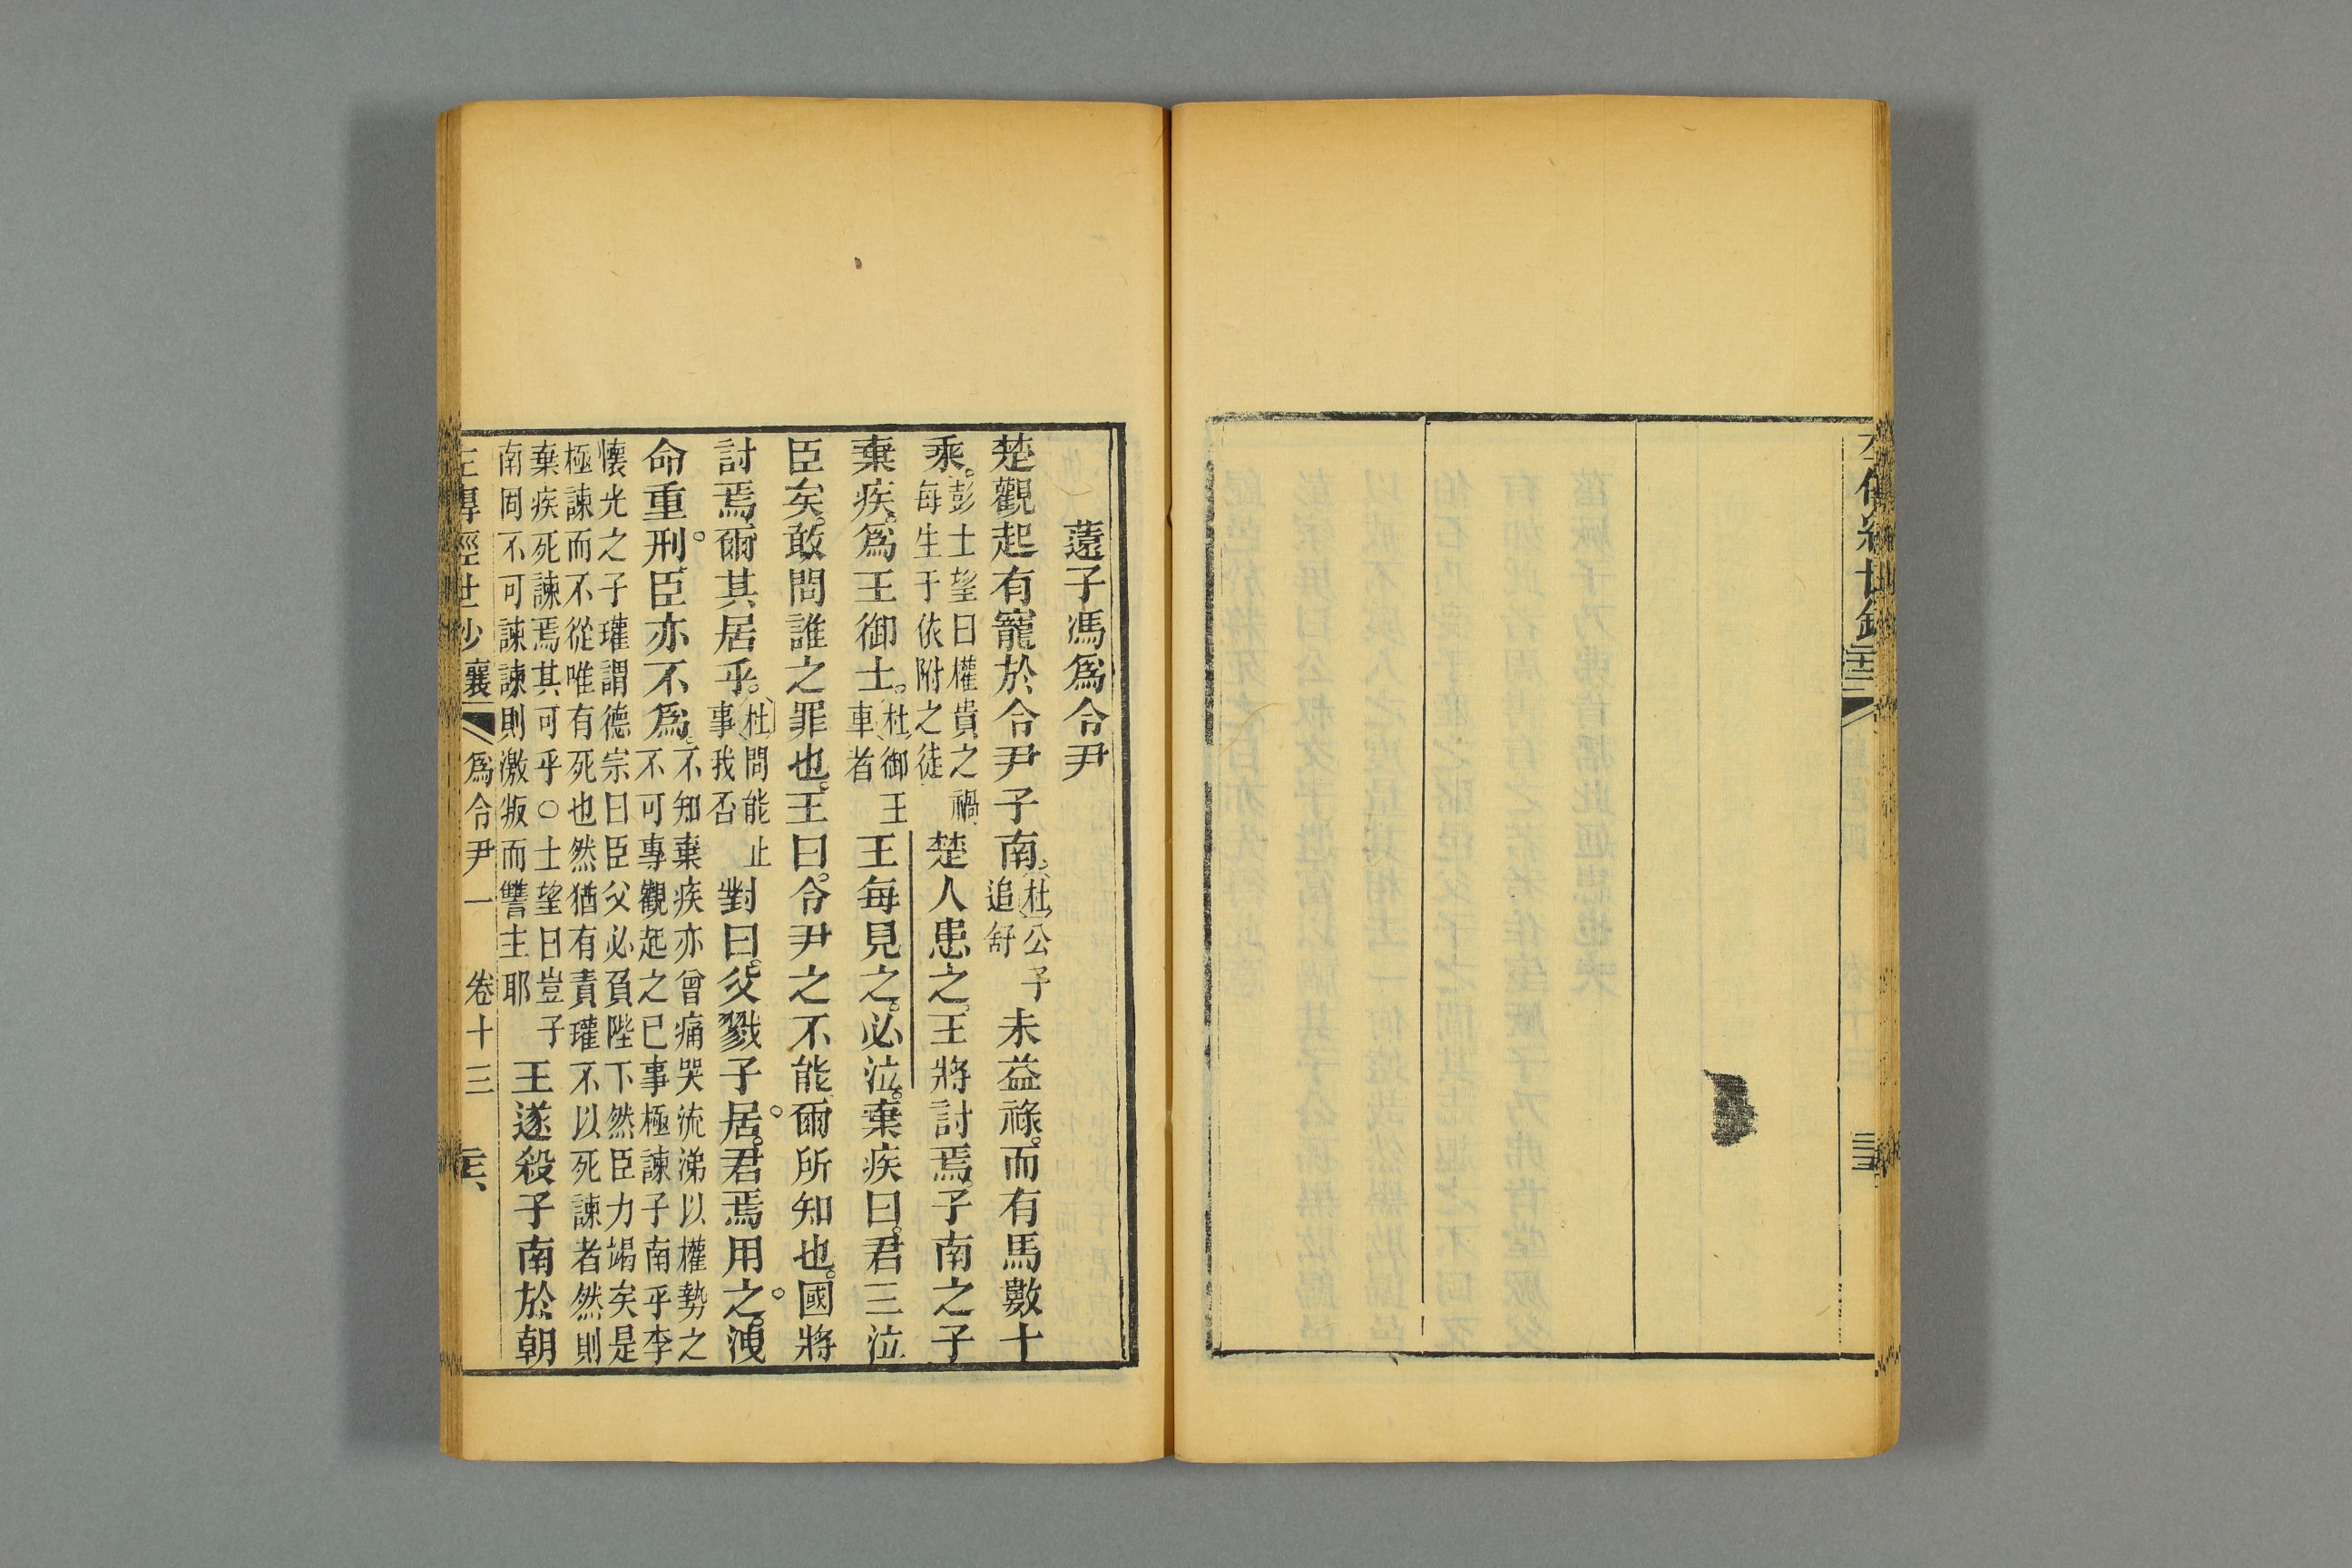 薳子馮爲令尹
楚觀起有寵於令尹子南杜公子追舒未益祿而有馬數十
乘彭士望曰權貴之禍每生于依附之徒楚人患之王將討焉子南之子
棄疾爲王御士杜御王車者王每見之必泣棄疾曰君三泣
臣矣敢問誰之罪也王曰令尹之不能爾所知也國將
討焉爾其居乎杜問能止事我否對曰父戮子居君焉用之洩
命重刑臣亦不爲不知棄疾亦曾痛哭流涕以權勢之不可專觀起之已事極諫子南乎李
懷光之子璀謂德宗曰臣父必負陛下然臣力竭矣是極諫而不從唯有死也然猶有責璀不以死諫者然則
棄疾死諫焉其可乎○士望曰豈子南固不可諫諫則激叛而讐主耶王遂殺子南於朝
左傳經世鈔 襄 爲令尹一 卷十三